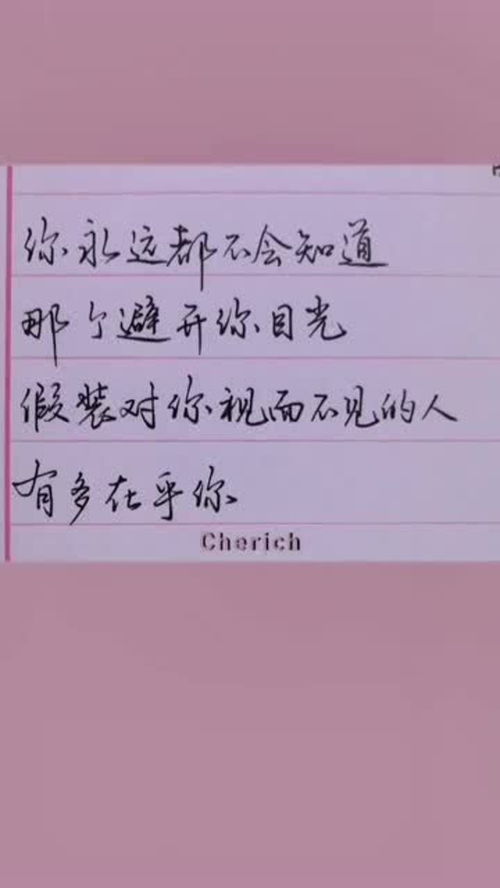 你永远都不会知道
那个避开你目光
假装对你视而不见的人
有多在乎你
Cherich